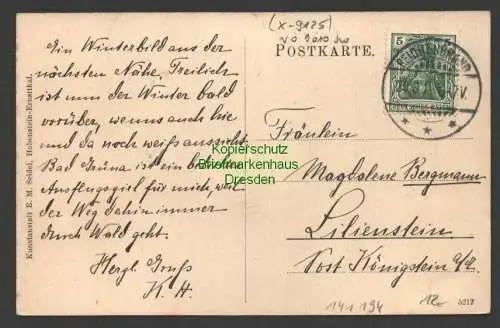 (X-9125)
POSTKARTE.
5
Ein Winterbild aus der
nächsten Nähe. Freilich
ist nun der Winter bald
vorüber, wenns auch hie
und da noch weiß aussieht.
Bad Grüna ist ein beliebter
Ausflugsziel für mich, weil
der Weg dahin immer
durch Wald geht.
Herzl. Gruß
K. H.
Kunstanstalt E. M. Seidel, Hohenstein-Ernstthal.
Kopierschutz
Briefmarkenhaus
Dresden
Fräulein
Magdalene Bergmann
Lilienstein
Post Königstein a/E.
141 194
12.-
5217